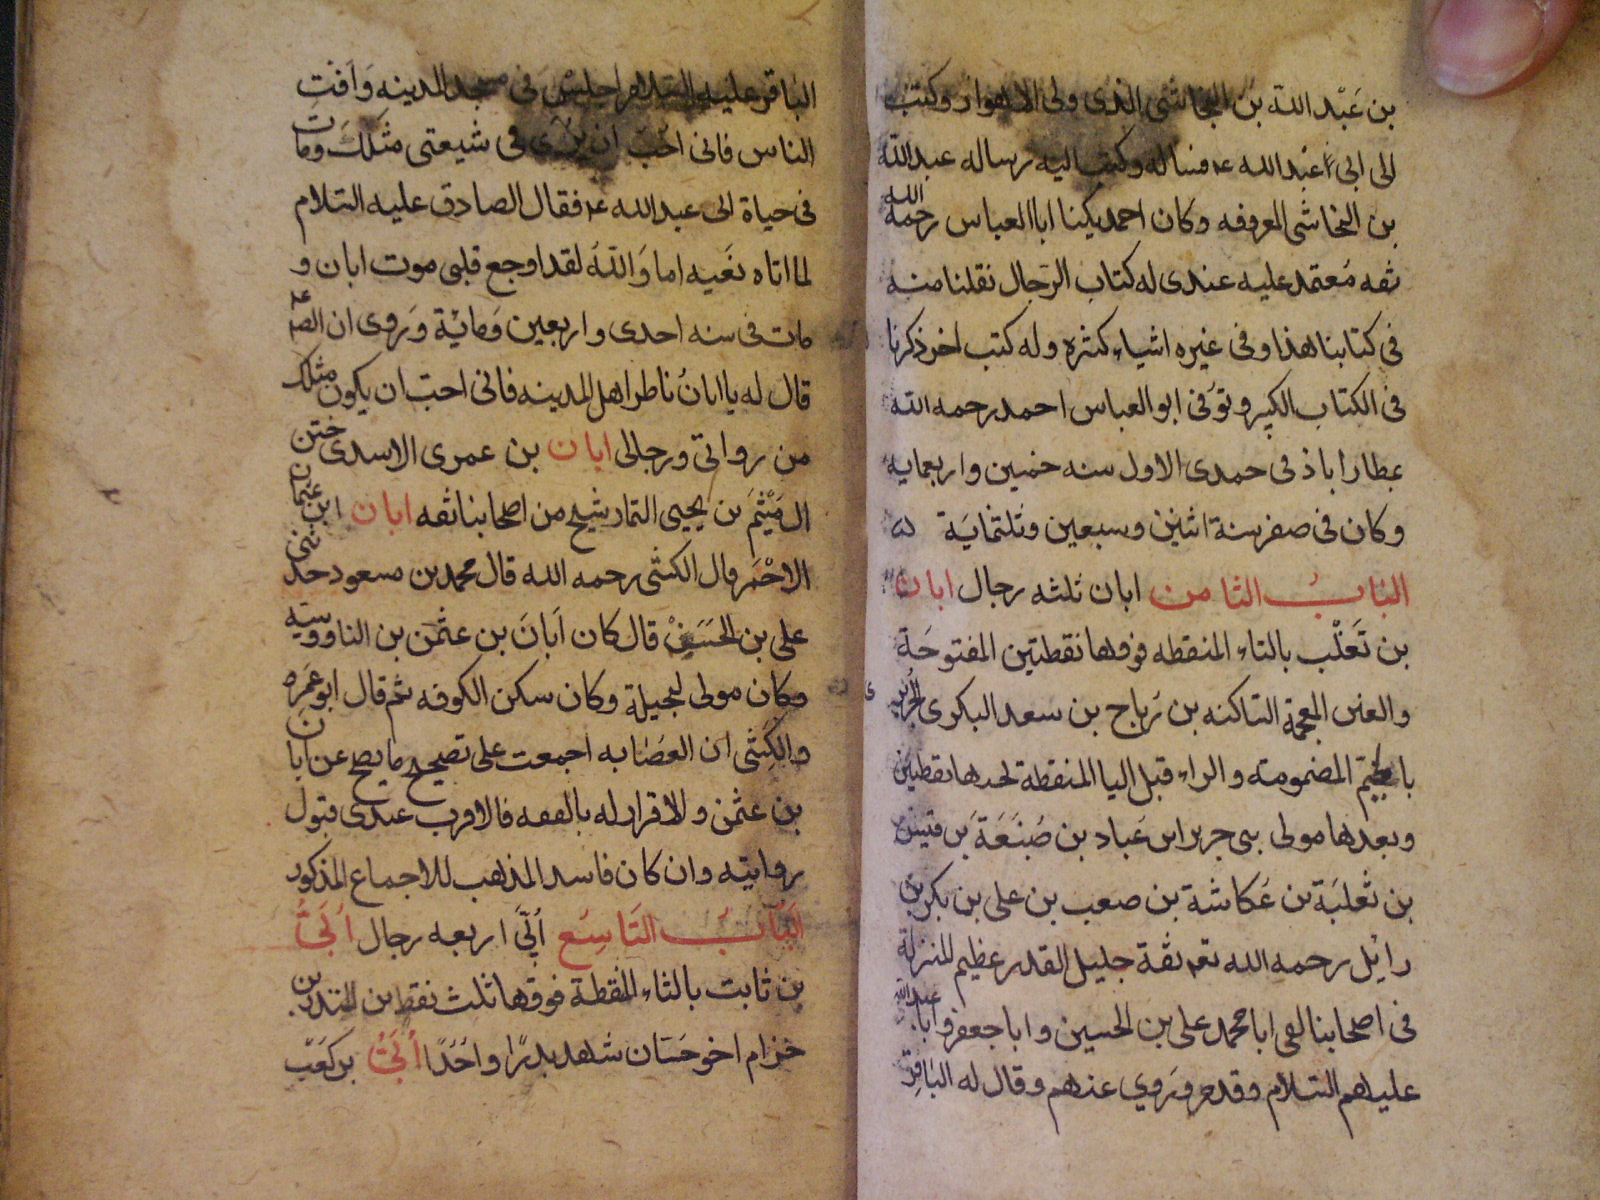 بن عبد الله بن النجاشى الذى ولى الاهواز وكتب
الى ابى عبد الله ع مساله وكتب اليه رساله عبد الله
بن النجاشى المعروفه وكان احمد يكنا ابا العباس رحمه الله
ثقه معتمد عليه عندى له كتاب الرجال نقلنا منه
فى كتابنا هذا وفى غيره اشياء كثره وله كتب اخر ذكرنا
فى الكتاب الكبير وتوفى ابو العباس احمد رحمه الله
بمطاراباذ فى حمدى الاول سنه خمسين واربعمايه
وكان فى صفر سنة اثنين وسبعين وثلثماية
الباب الثامن ابان ثلثه رجال ابان
بن تغلب بالتاء المنقطه فوقها نقطتين المفتوحة
والغين المعجمة الساكنه بن رباح بن سعد البكرى الجريرى
بالجيم المضمومته والراء قبل اليا المنقطة تحتها نقطتين
وبعدها مولى بنى جرير ابن عباد بن ضبيعة بن قيس
بن ثعلبة بن عكاشة بن صعب بن على بن بكر بن
رايل رحمه الله تع ثقة جليل القدر عظيم المنزلة
فى اصحابنا لقى ابا محمد على بن الحسين وابا جعفر و ابا عبد الله
عليهم السلام وقدم وروي عنهم وقال له الباقر
الباقر عليه السلام اجلس فى مسجد المدينه وافت
الناس فانى احب ان يرى فى شيعتى مثلك ومات
فى حياة ابى عبد الله ع فقال الصادق عليه السلام
لما اتاه نعيه اما والله لقد اوجع قلبى موت ابان و
مات فى سنه احدى واربعين ومائة وروى ان الصع
قال له يا ابان ناظر اهل المدينه فانى احب ان يكون مثلك
من رواتى ورجالى ابان بن عمرى الاسدى ختن
ال ميثم بن يحيى التمار شيخ من اصحابنا ثقه ابان ابن عثمان
الاحمر قال الكشى رحمه الله قال محمد بن مسعود حدثنى
على بن الحسن قال كان ابان بن عثمن بن الناووسيه
وكان مولى لبجيلة وكان سكن الكوفه ثم قال ابو عمره
والكشى ان العصابه اجمعت على تصحيح ما يصح عن ابان
بن عثمن والاقرار له بالفقه فالاقرب عندى قبول
روايته وان كان فاسد المذهب للاجماع المذكور
الباب التاسع أبي اربعه رجال أبي
بن ثابت بالثاء المنقطة فوقها ثلث نقط بن المنذر بن
حزام اخو حسان شاهد بدرا واحدا أبي بن كعب